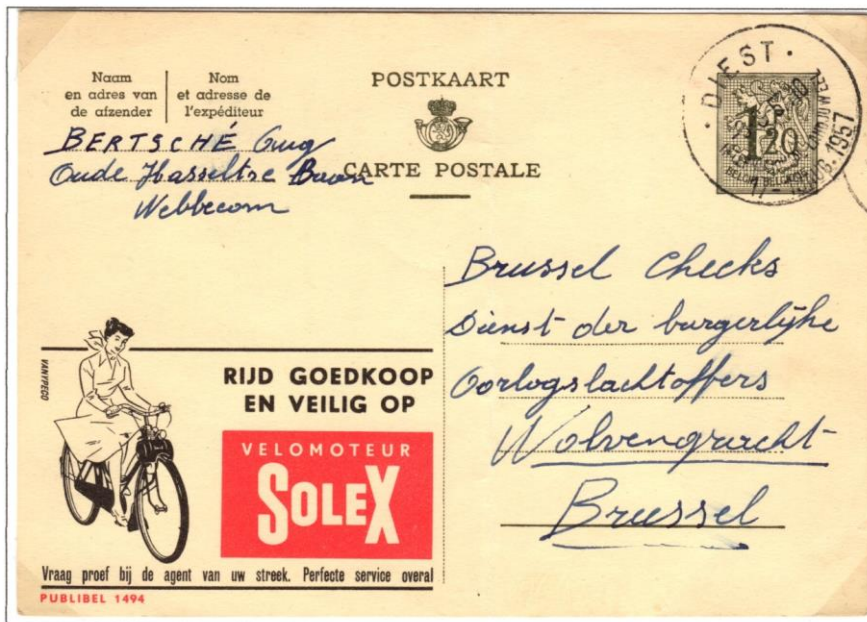 Naam
en adres van
de afzender
Nom
et adresse de
l'expéditeur
POSTKAART
CARTE POSTALE
BERTSCHÉ Gug
Oude Hasseltse Baan
Webbecom
· DIEST ·
1,20
1957
Brussel Checks
Dienst der burgerlijke
Oorlogslachtoffers
Wolvengracht
Brussel
VANYPECO
RIJD GOEDKOOP
EN VEILIG OP
VELOMOTEUR
SOLEX
Vraag proef bij de agent van uw streek. Perfecte service overal
PUBLIBEL 1494